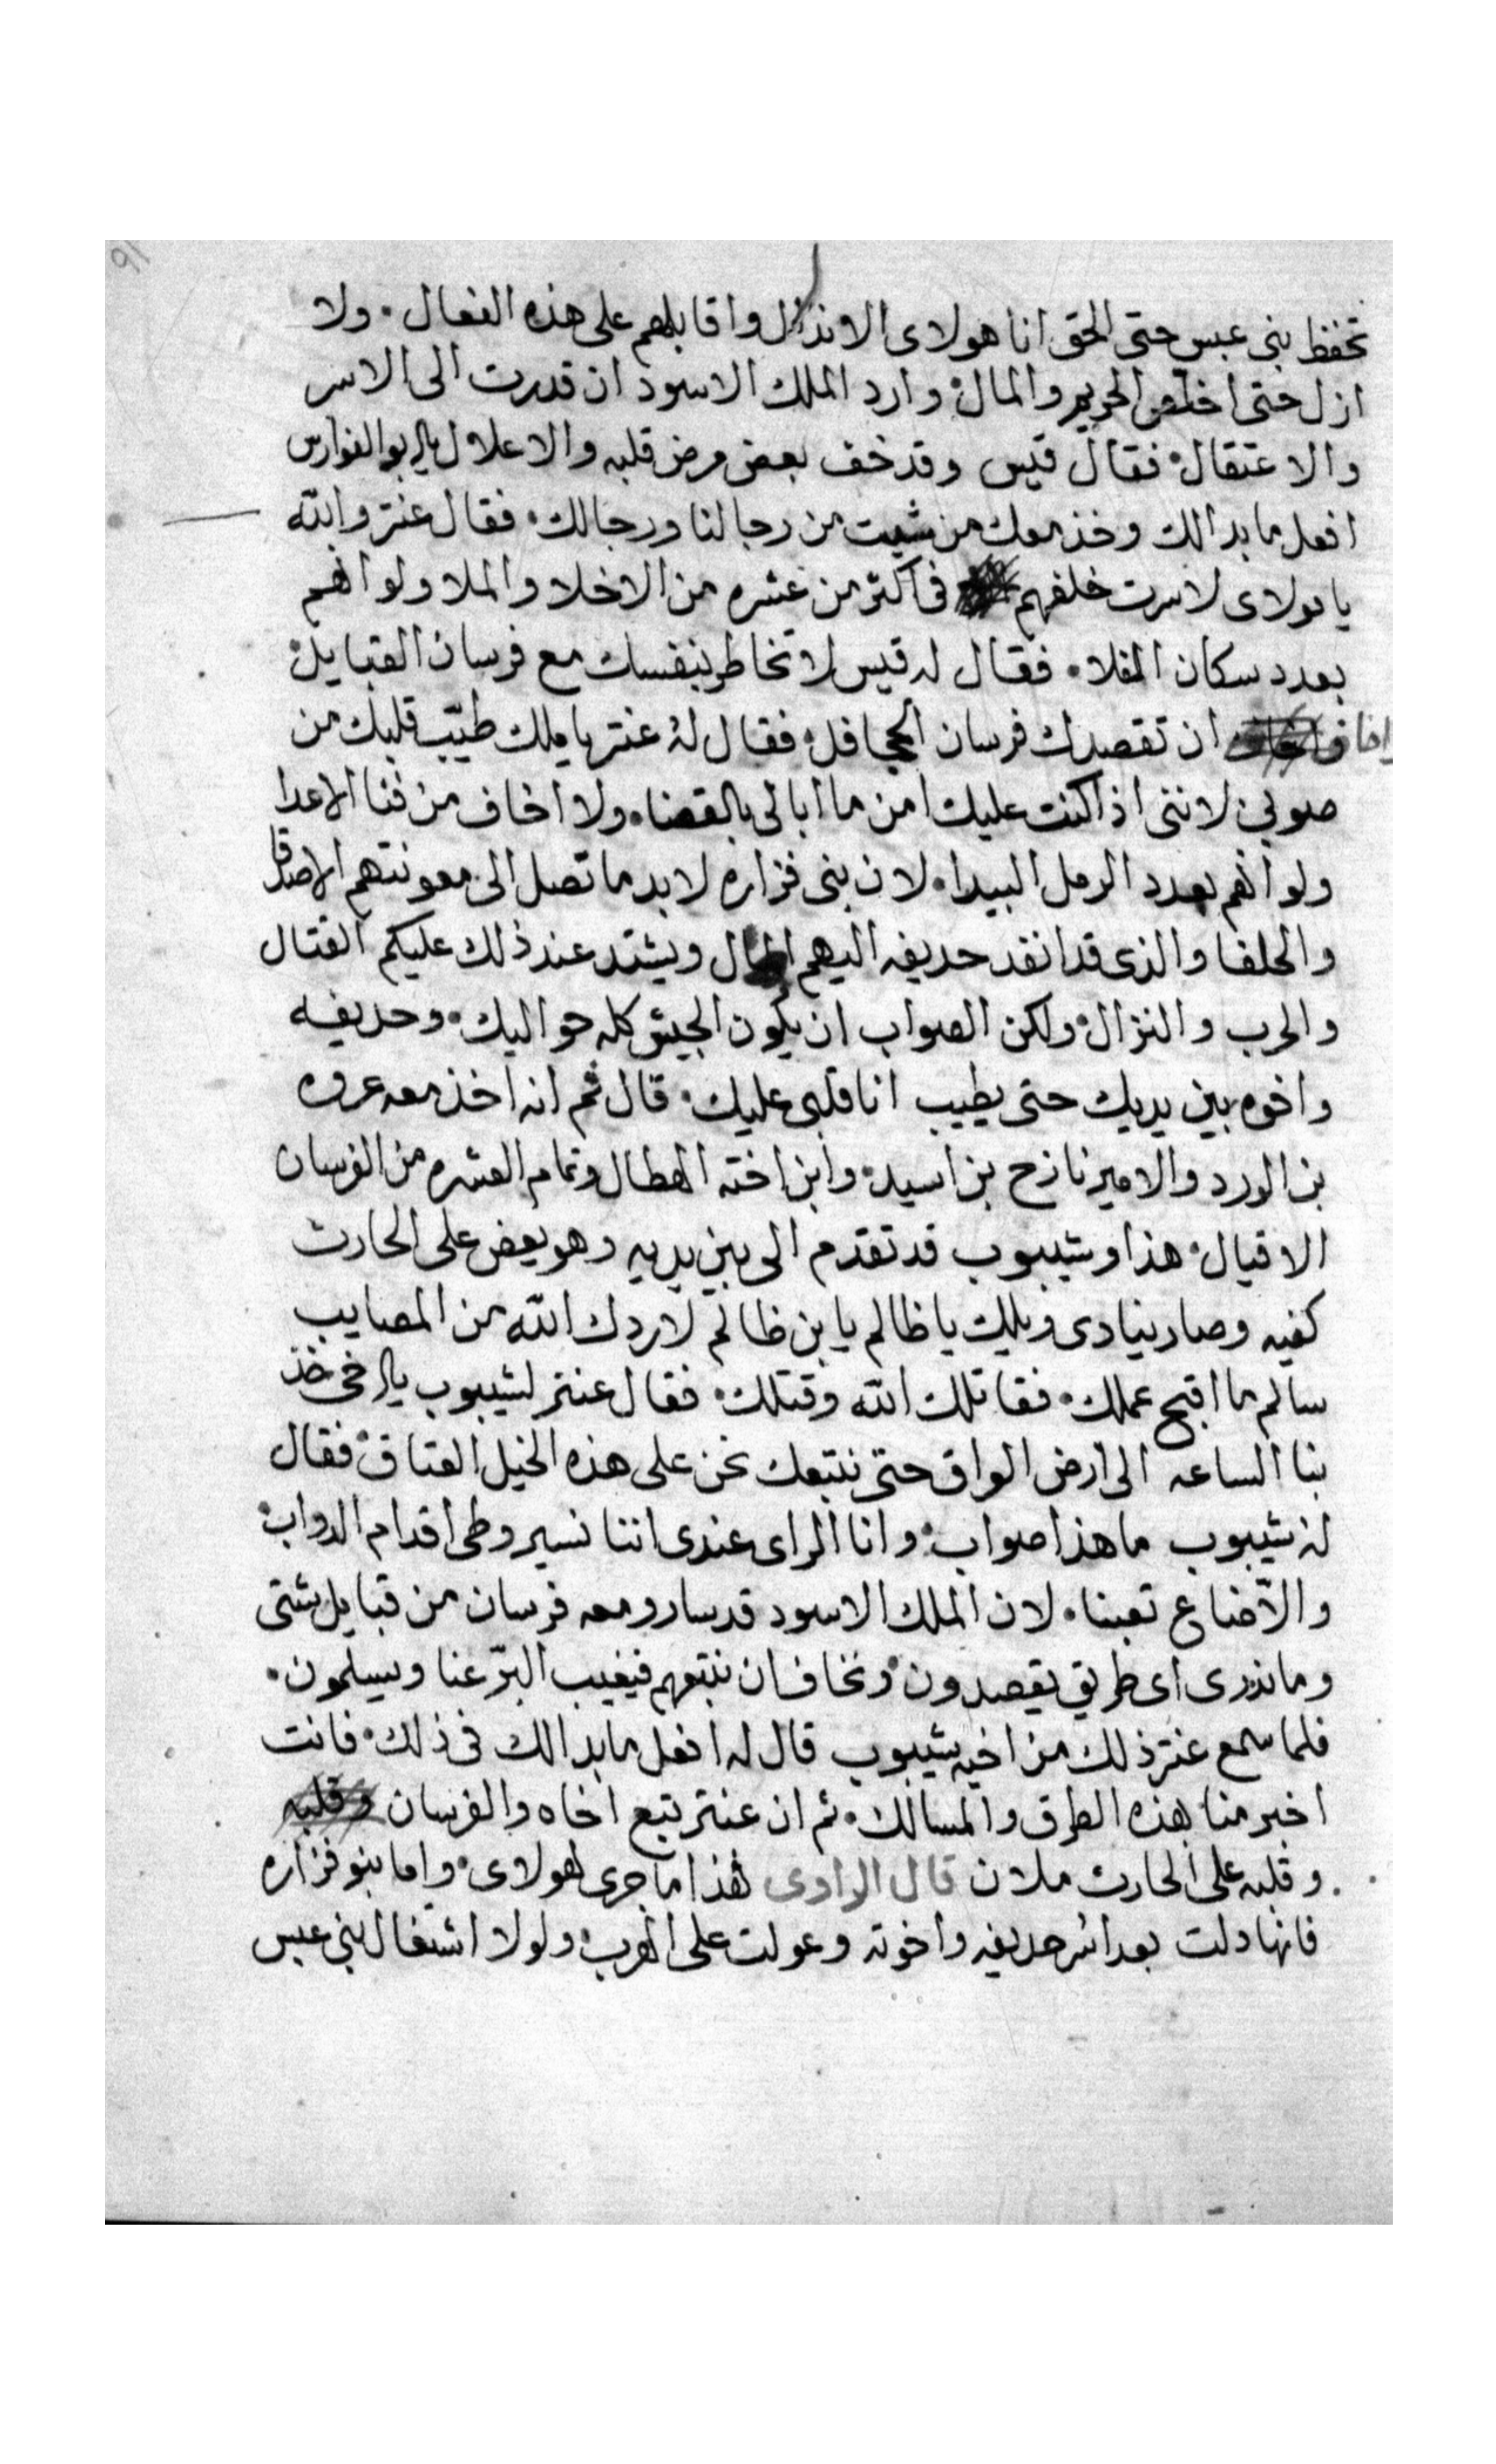 ٩١
تحفظ بنى عبس حتى الحق انا هولاى الاندال واقابلهم على هذه الفعال. ولا
ازل حتى اخلص الحريم والمال. وارد الملك الاسود ان قدرت الى الاسر
والاعتقال. فقال قيس وقد خف بعض مرض قلبه والاعلال يابو الفوارس
افعل ما بدالك وخذ معك من شيت من رجالنا ورجالك. فقال عنتر والله
يا مولاى لاسرت خلفهم فى اكثر من عشره من الاخلا والملا ولو انهم
بعدد سكان الفلا. فقال له قيس لا تخاطر بنفسك مع فرسان القبايل.
واخاف ان تقصدك فرسان الجحافل. فقال له عنتر يا ملك طيّب قلبك من
صوبى لاننى اذا كنت عليك امن ما ابالى بالقضا. ولا اخاف من فنا الاعدا
ولو انهم بعدد الرمل البيدا. لان بنى فزاره لابد ما تصل الى معونتهم الاصدقا
والحلفا والذى قد انفد حديفه اليهم المال ويشتد عند ذلك عليكم القتال
والحرب والنزال. ولكن الصواب ان يكون الجيش كله حواليك. وحديفه
واخوه بين يديك حتى يطيب انا قلبى عليك. قال ثم انه اخذ معه عروه
بن الورد والامير نازح بن اسيد. وابن اخته الهطال وتمام العشره من الفرسان
الاقيال. هذا وشيبوب قد تقدم الى بين يديه وهو يعض على الحارث
كفيه وصار ينادى ويلك يا ظالم يا بن ظالم لا ردك الله من المصايب
سالم ما اقبح عملك. فقاتلك الله وقتلك. فقال عنتر لشيبوب يا اخى خذ
بنا الساعه الى ارض العراق حتى نتبعك نحن على هذه الخيل العتاق. فقال
له شيبوب ما هذا صواب. وانا الراى عندى اننا نسير وطى اقدام الدواب.
والّا ضاع تعبنا. لان الملك الاسود قد سار ومعه فرسان من قبايل شتى
وما ندرى اى طريق يقصدون. ونخاف ان نتبعهم فيغيب البرّ عنا ويسلمون.
فلما سمع عنتر ذلك من اخيه شيبوب قال له افعل ما بدالك فى ذلك. فانت
اخبر منا بهذه الطرق والمسالك. ثم ان عنتر تبع اخاه والفرسان
وقلبه على الحارث ملان قال الراوى هذا ما جرى لهولاى. واما بنو فزاره
فانها دلت بعد اسر حديفه واخوته وعولت على الهرب. ولولا اشتغال بنى عبس